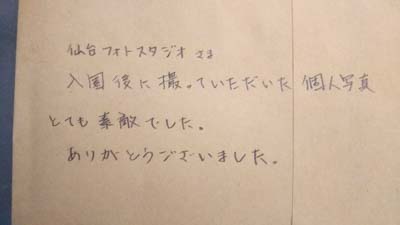 仙台フォトスタジオ さま
入園後に撮っていただいた 個人写真
とても素敵でした。
ありがとうございました。